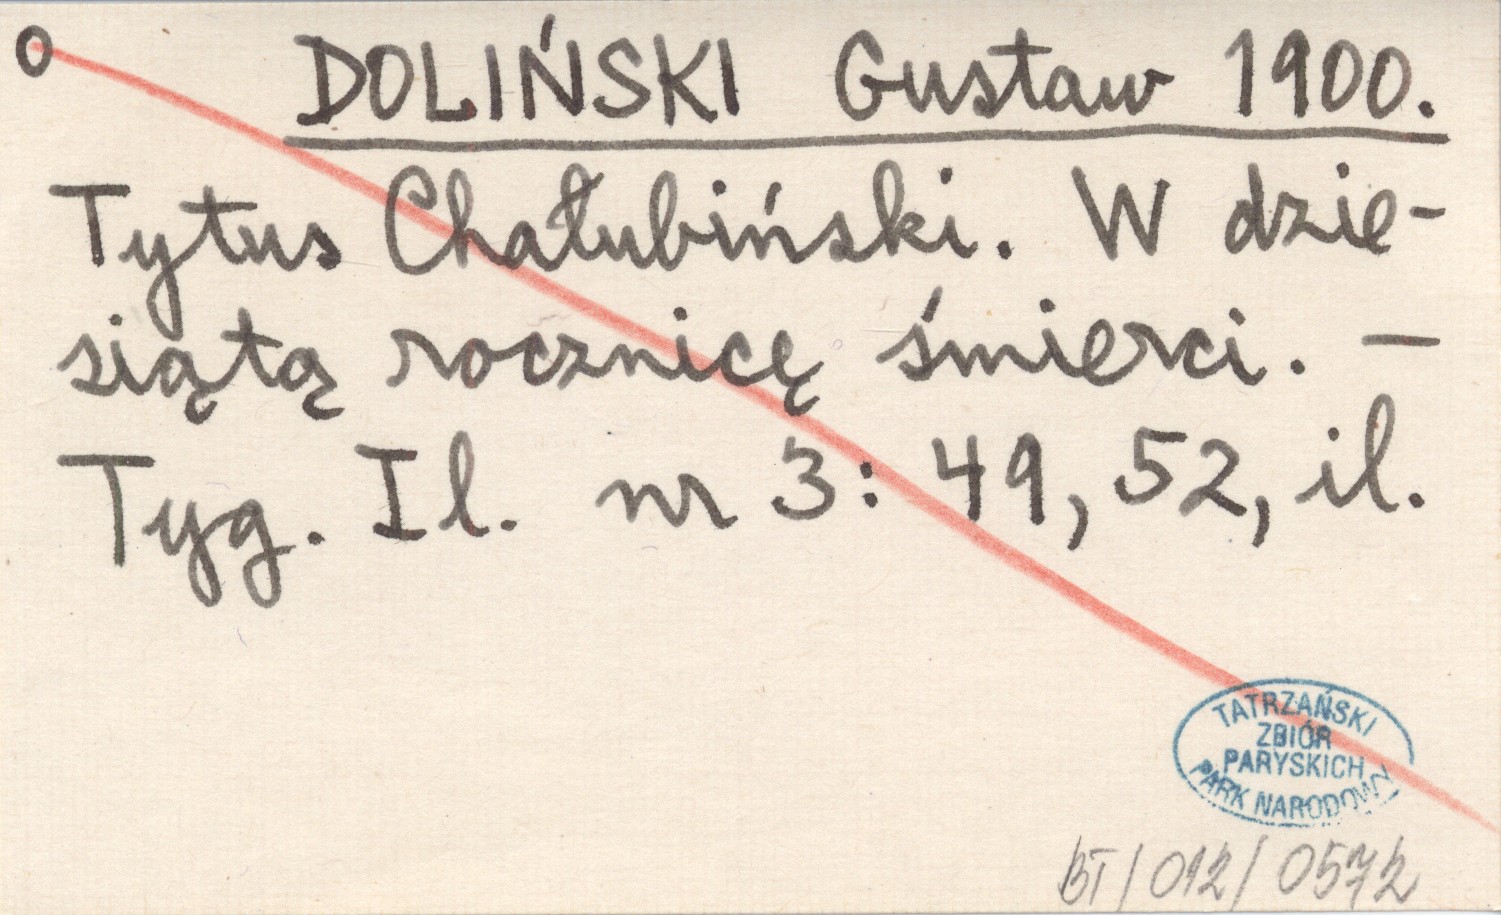 O DOLIŃSKI Gustaw 1900.
Tytus Chałubiński. W dzie-
siątą rocznicę śmierci. —
Tyg. Il. nr 3: 49, 52, il.
TATRZAŃSKI
ZBIÓR
PARYSKICH
PARK NARODOWY
BT/012/0572